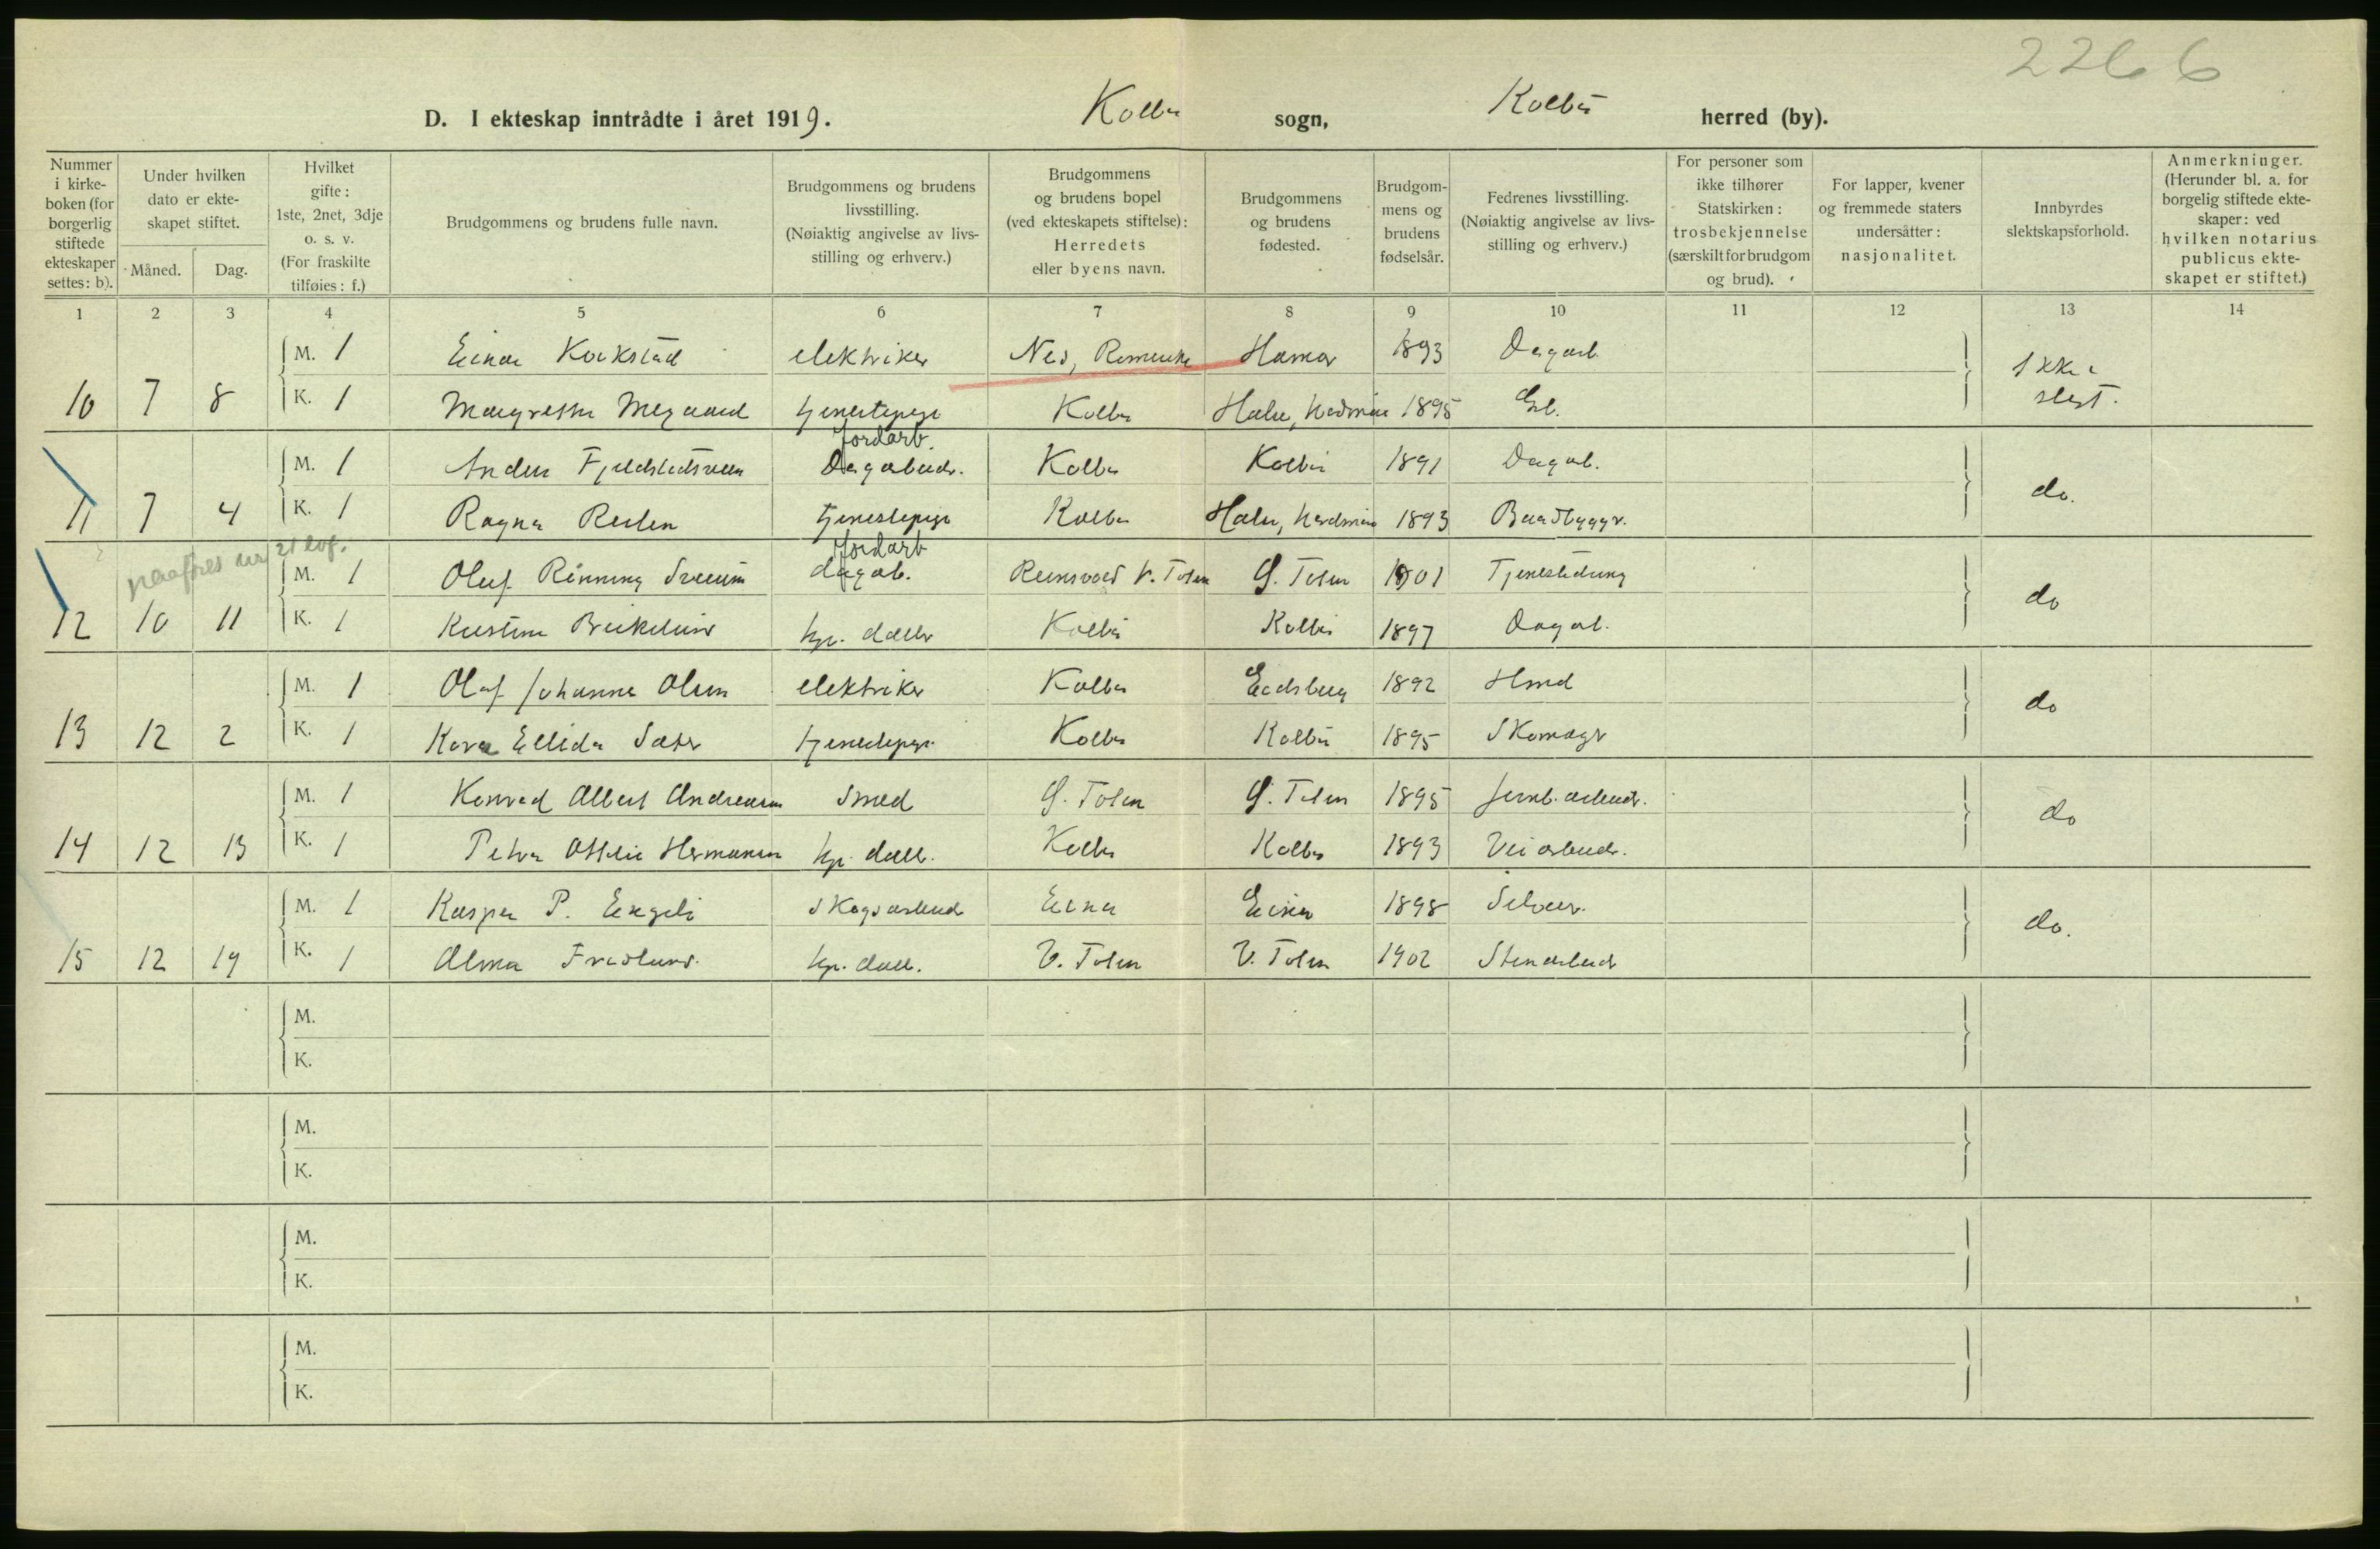 2266
D. I ekteskap inntrådte i året 1919. Kolbu sogn, Kolbu herred (by).
Nummer i kirkeboken (for borgerlig stiftede ekteskaper settes: b).
Under hvilken dato er ekteskapet stiftet.
Måned. Dag.
Hvilket gifte: 1ste, 2net, 3dje o. s. v. (For fraskilte tilføies: f.)
Brudgommens og brudens fulle navn.
Brudgommens og brudens livsstilling. (Nøiaktig angivelse av livsstilling og erhverv.)
Brudgommens og brudens bopel (ved ekteskapets stiftelse): Herredets eller byens navn.
Brudgommens og brudens fødested.
Brudgommens og brudens fødselsår.
Fedrenes livsstilling. (Nøiaktig angivelse av livsstilling og erhverv.)
For personer som ikke tilhører Statskirken: trosbekjennelse (særskilt for brudgom og brud).
For lapper, kvener og fremmede staters undersåtter: nasjonalitet.
Innbyrdes slektskapsforhold.
Anmerkninger. (Herunder bl. a. for borgelig stiftede ekteskaper: ved hvilken notarius publicus ekteskapet er stiftet.)
1 2 3 4 5 6 7 8 9 10 11 12 13 14
M. 1 Einar elektriker Nes, Romerike Hamar 1893 Dagarb.
10 7 8 K. 1 Margrethe Megaard tjenestepige Kolbu 1895 Ikke slegt.
jordarb.
M. 1 Kolbu Kolbu 1891 Dagarb.
11 7 4 K. 1 Ragna tjenestepige Kolbu 1893 do.
jordarb
M. 1 Oluf Rønning dagarb. Reinsvold V. Toten Ø. Toten 1901
12 10 11 K. 1 Kristine hj. datter Kolbu Kolbu 1897 Dagarb. do
M. 1 Olaf Johannes Olsen elektriker Kolbu Eidsberg 1892 Smed
13 12 2 K. 1 Ellida Sæter tjenestepige Kolbu Kolbu 1895 Skomager do
M. 1 Konrad Albert Andreasen Smed Ø. Toten Ø. Toten 1895 jernb. arbeider.
14 12 13 K. 1 Petra Ottilie Hermansen hj. datter. Kolbu Kolbu 1893 Veiarbeider. do
M. 1 Kasper P. Engeli Skogsarbeider Eina Eina 1898 Selveier.
15 12 19 K. 1 Alma Fredlund. hj. datter. V. Toten V. Toten 1902 Stenarbeider do.
M.
K.
M.
K.
M.
K.
M.
K.